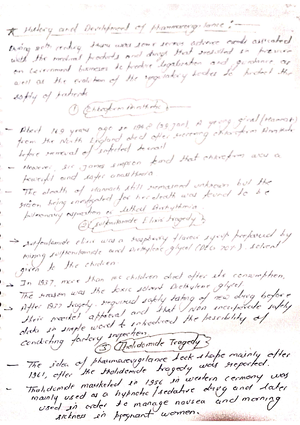 * History and Development of Pharmacovigilance :-
During 20th century there was some serious adverse events associated
with the medical products and drugs that resulted in
on Government to produce legislation and guidance as
well as the evolution of the regulatory bodies to protect the
safety of patients
① Chloroform
- About 169 years ago in 1848 (29 Jan) A young girl (Hannah)
from the North England died after receiving chloroform Anaesthesia
before removal of infected toenail
- However Sir James Simpson found that chloroform was a
powerful and safe anaesthesia
- The death of Hannah still remained unknown but the
reason being investigated for her death was found to be
pulmonary aspiration or lethal Arrhythmia
② Sulfanilamide Elixir tragedy
→ Sulfanilamide elixir was a raspberry flavour syrup prepared by
mixing sulfanilamide and Diethylene glycol solvent
given to the children
- In 1937, more than 100 children died after the consumption
The reason was the toxic solvent Diethylene glycol.
- After 1937 tragedy required safety testing of drug before
their market approval and that incorporate safety
data in simple words to introduced the possibility of
conducting factory inspection
③ Thalidomide Tragedy
- The idea of pharmacovigilance took shape mainly after
1961, after the Thalidomide tragedy was reported.
- Thalidomide marketed in 1956 in western Germany was
mainly used as a hypnotic/sedative drug and later
used in order to manage nausea and morning
sickness in pregnant women.